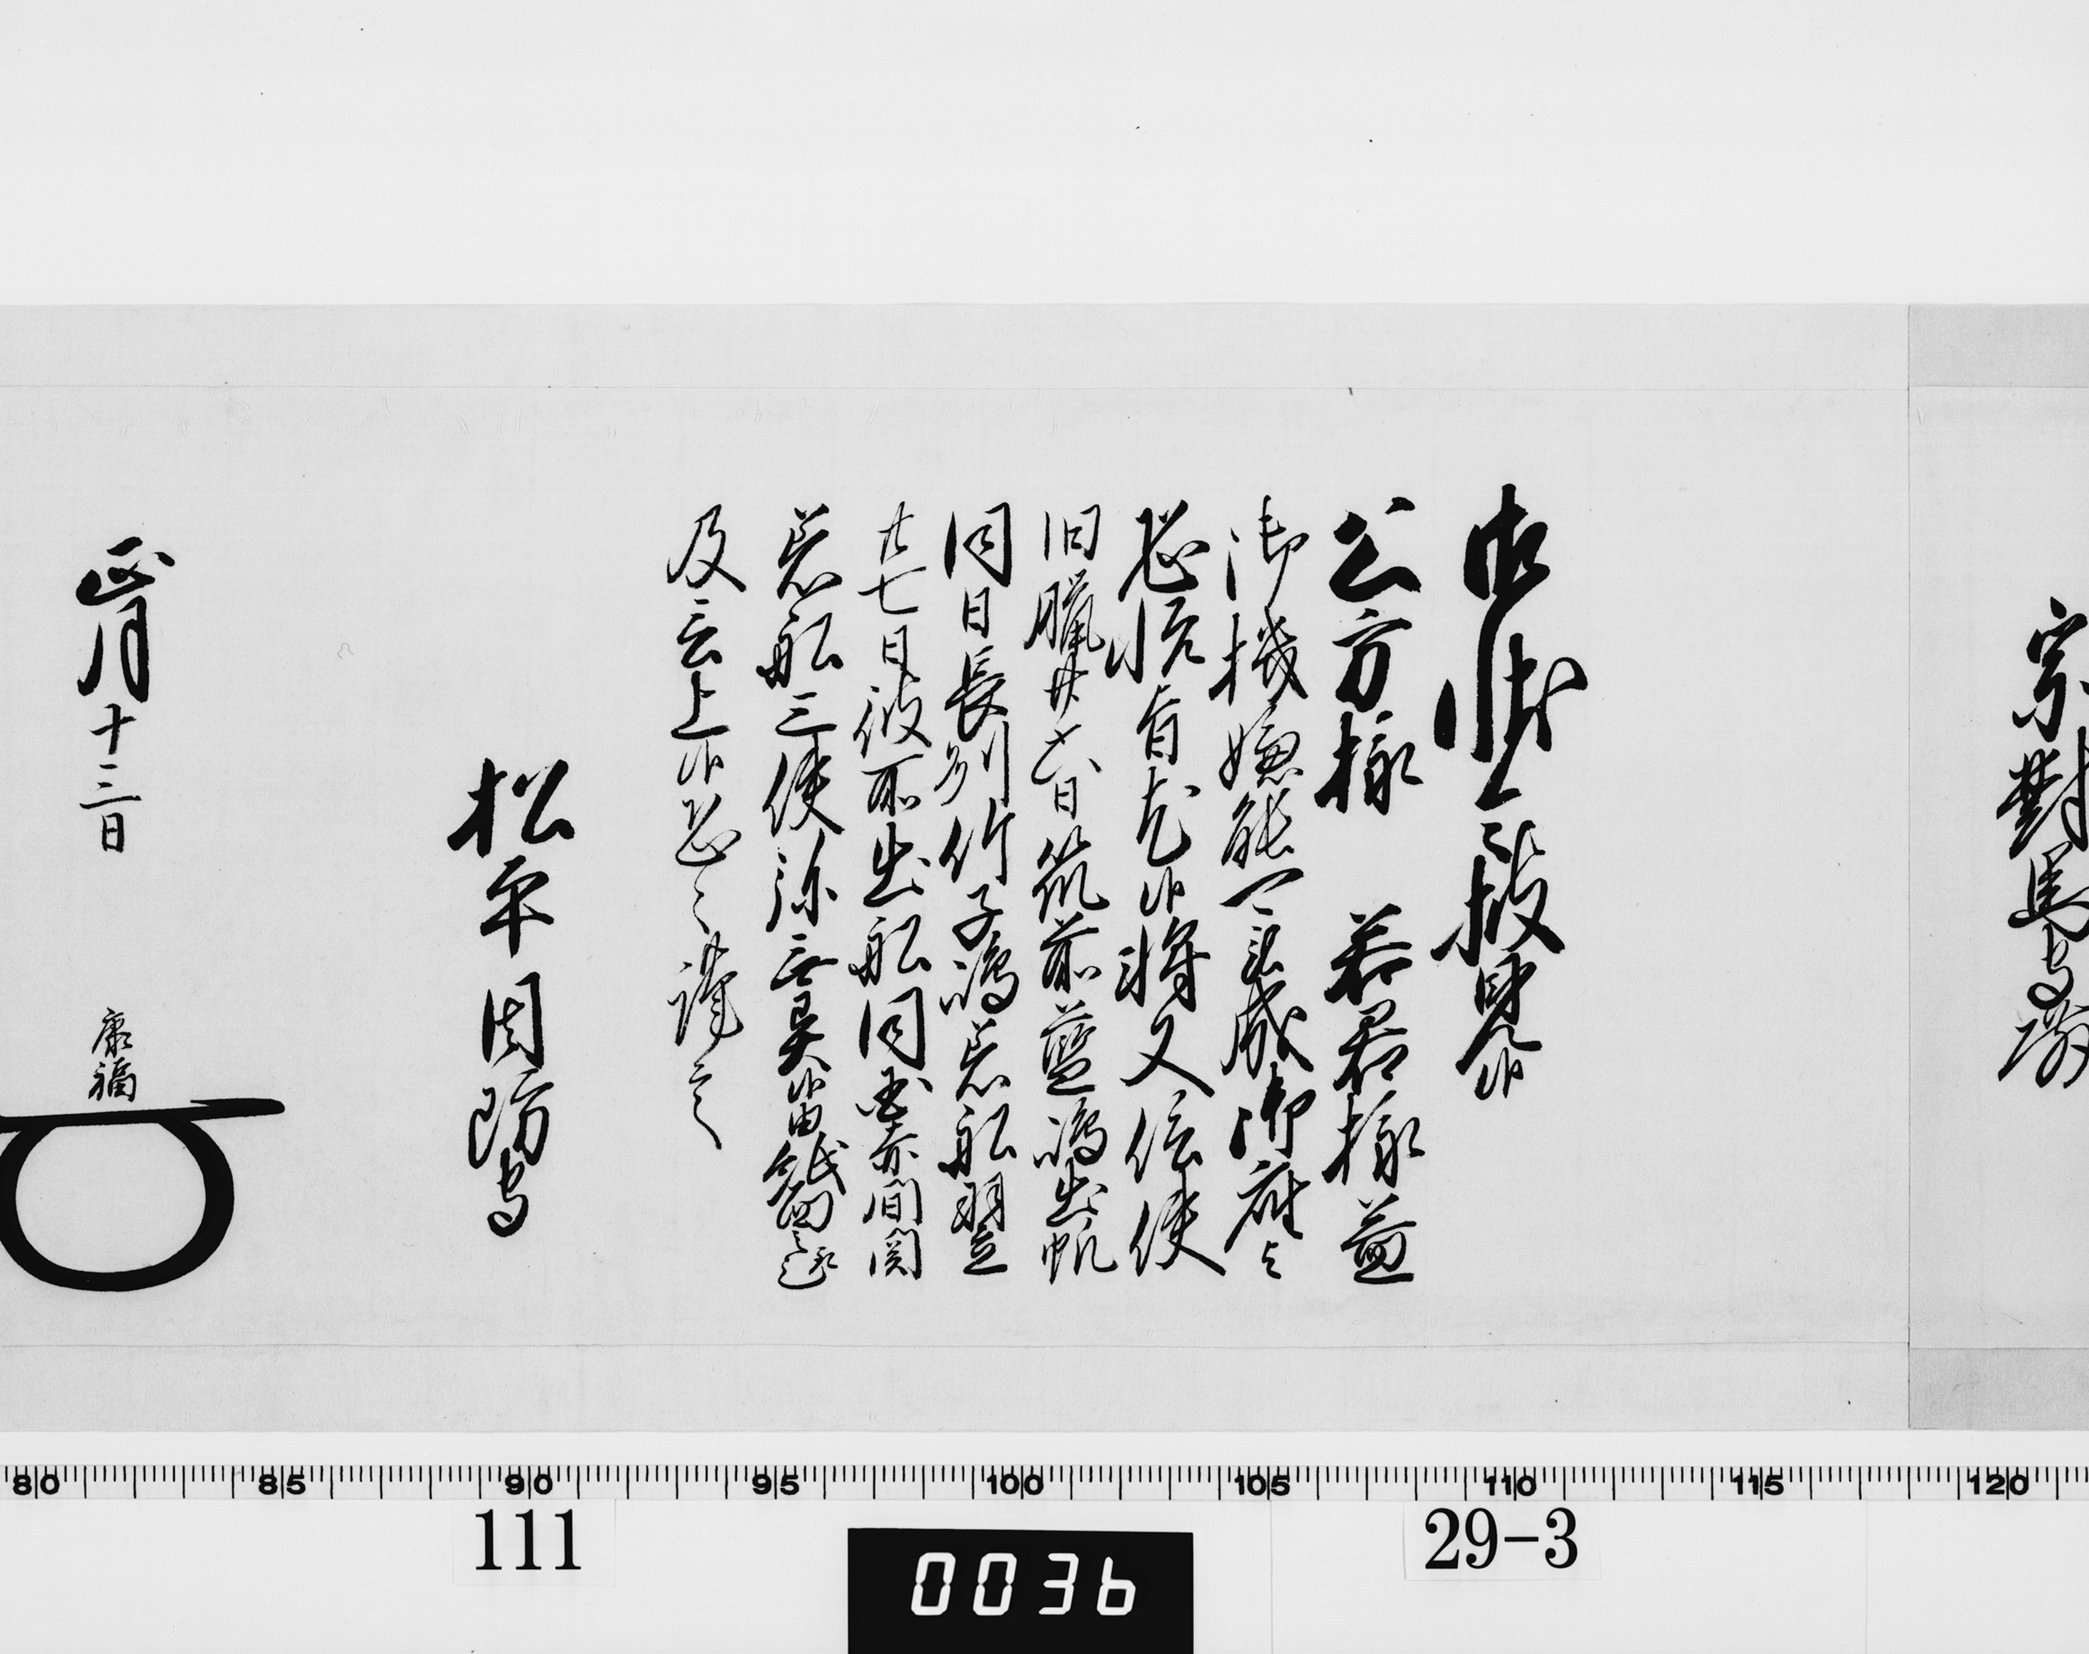 宗對馬守殿
御状令披見候
公方様 若君様益
御機嫌能可被成御座与
恐悦旨尤候将又信使
旧臘廿六日筑前藍嶋出帆
同日長刕竹子嶋着船翌
廿七日彼所出船同国赤間関
着船三使弥無異候由紙面之趣
及言上候恐々謹言
松平周防守
正月十三日
康福
80 85 90 95 100 105 110 115 120
111
0036
29-3